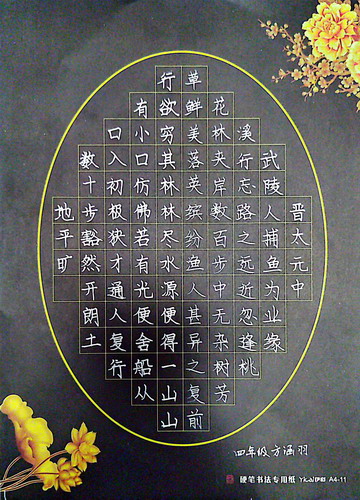 晋太元中
武陵人捕鱼为业缘
溪行志路之远近忽逢桃
花林夹岸数百步中无杂树芳
草鲜美落英缤纷渔人甚异之复前
行欲穷其林林尽水源便得一山山
有小口仿佛若有光便舍船从
口入初极狭才通人复行
数十步豁然开朗土
地平旷
四年级 方涵羽
硬笔书法专用纸 Yicai伊彩 A4-11